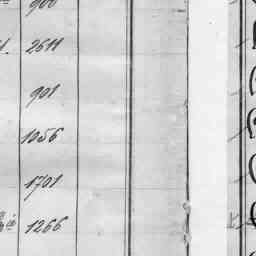 900
2611
901
1056
1701
1266